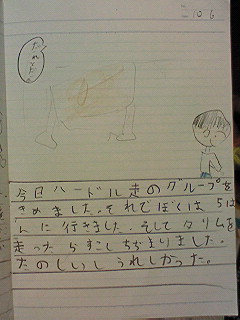 二 10 6
今日ハードル走のグループを
きめました。それでぼくは5は
んに行きました。そして タリムを
走ったらすこしちぢまりました。
たのしいしうれしかった。